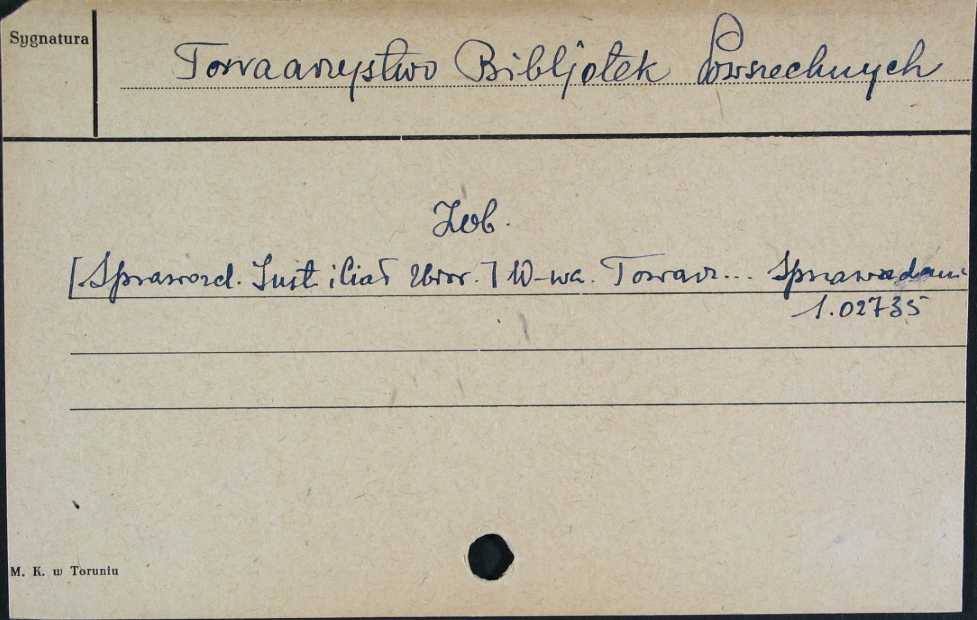 Sygnatura
Towarzystwo Bibljotek Powszechnych
Zob.
[Sprawozd. Inst. i Ciał Zbior.] W-wa. Towarz... Sprawozdani
1.02735
M. K. w Toruniu